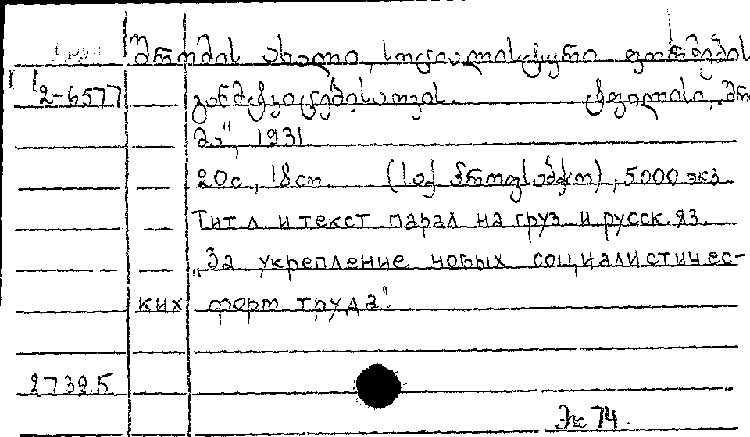 შრომის ახალი სოციალისტური ფორმების
12-6577 განმტკიცებისათვის. ტფილისი, „შრო
მა“, 1931
20с., 18см (საქ პროფსაბჭო), 5000 экз
Титл и текст парал на груз и русск. яз.
„За укрепление новых социалистичес-
ких форм труда".
27325
Эк 74.